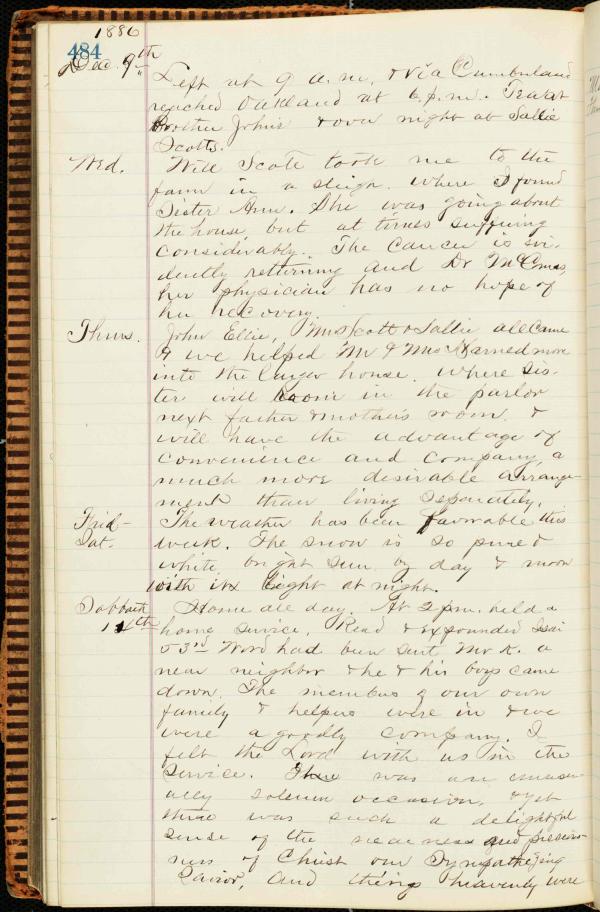 1886
484
Dec. 9th
Left at 9 a.m. & via Cumberland
reached Oakland at 6 p.m. Tea at
Brother John's & over night at Sallie
Scotts.
Wed. Will Scott took me to the
farm in a sleigh. where I found
Sister Ann. She was going about
the house, but at times suffering
considerably. The cancer is evi-
dently returning and Dr McComas,
her physician has no hope of
her recovery.
Thurs. John Ellie, Mrs Scott & Sallie all came
& we helped Mr & Mrs Harned move
into the larger house. where sis-
ter will room in the parlor
next father & mother's room. &
will have the advantage of
convenience and company, a
much more desirable arrange-
ment than living separately.
Frid- The weather has been favorable this
Sat. week. The snow is so pure &
white, bright sun, by day & moon
with its light at night.
Sabbath Home all day. At 2 p.m. held a
14th home service, Read & expounded Isai
53rd Word had been sent Mr K. a
near neighbor & he & his boys came
down. The members of our own
family & helpers were in & we
were a goodly company. I
felt the Lord with us in the
service. There was an unusu-
ally solemn occasion, & yet
there was such a delightful
sense of the nearness and precious-
ness of Christ our Sympathizing
Savior, and things heavenly were